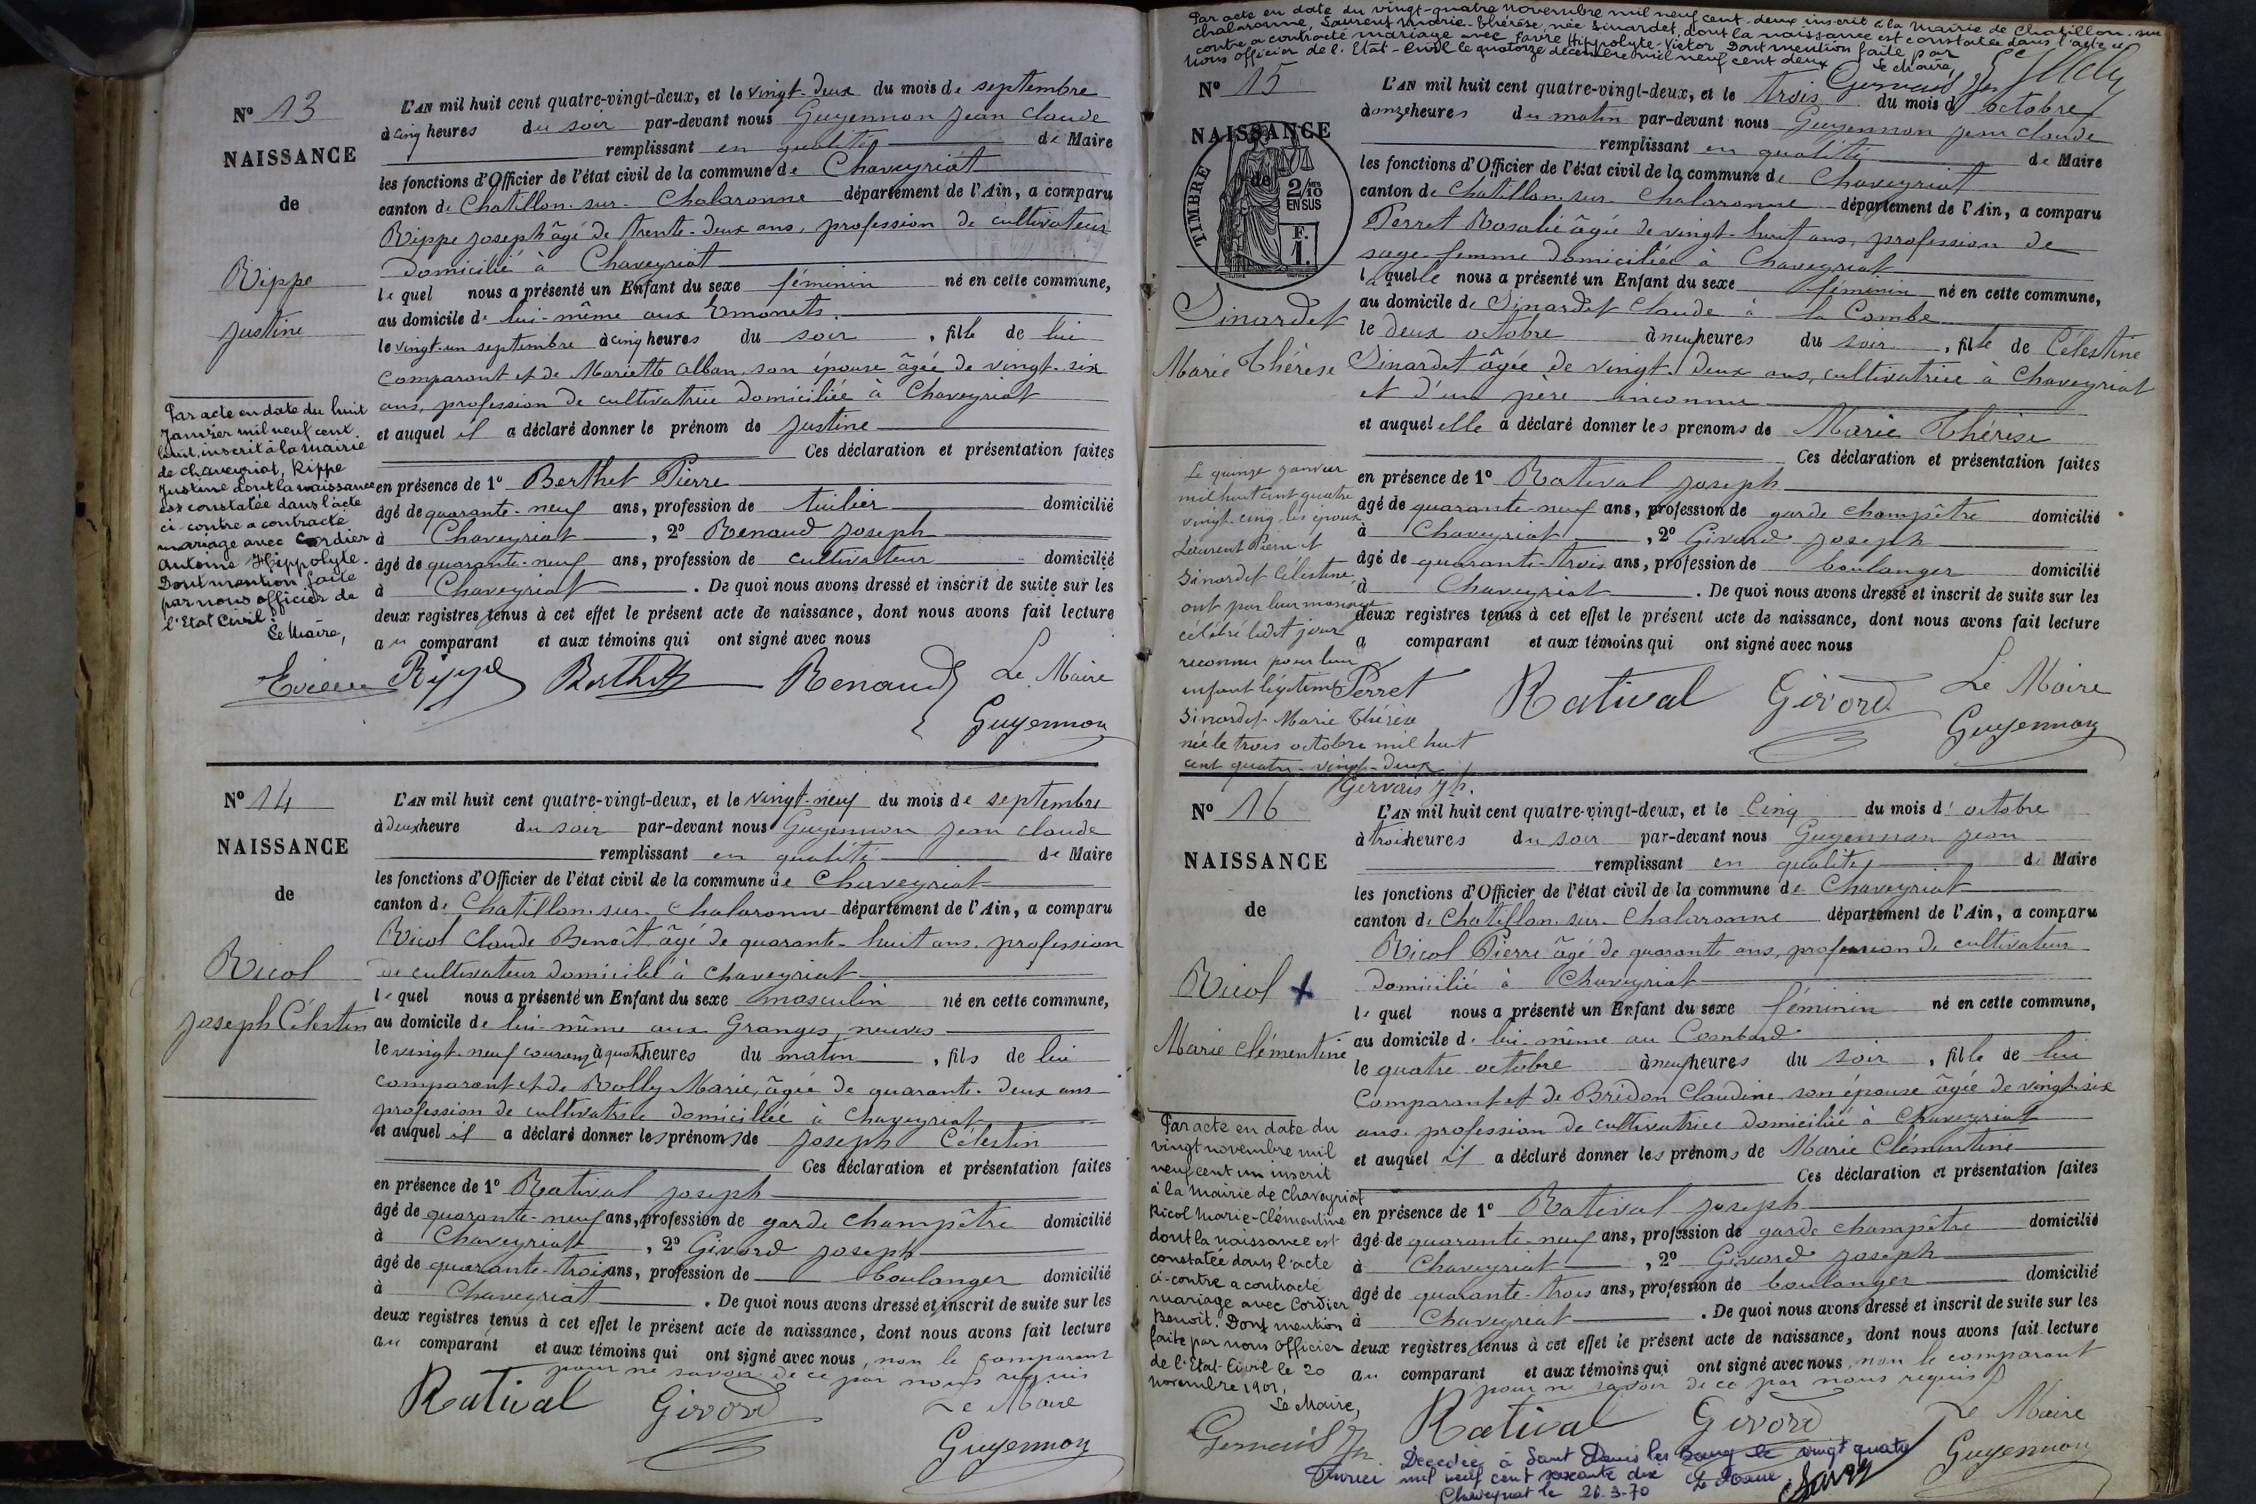 Nº 13
NAISSANCE
de
Rippe
Justine
Par acte en date du huit
Janvier mil neuf cent
huit, inscrit à la mairie
de Chaveyriat, Rippe
Justine dont la naissance
est constatée dans l'acte
ci-contre a contracté
mariage avec Cordier
Antoine Hippolyte.
Dont mention faite
par nous officier de
l'Etat Civil.
Le Maire,
L'AN mil huit cent quatre-vingt-deux, et le vingt-deux du mois de septembre
à cinq heures du soir par-devant nous Guyennon Jean Claude
remplissant en qualité de Maire
les fonctions d'Officier de l'état civil de la commune de Chaveyriat
canton de Chatillon-sur-Chalaronne département de l'Ain, a comparu
Rippe Joseph âgé de trente-deux ans, profession de cultivateur
domicilié à Chaveyriat
lequel nous a présenté un Enfant du sexe féminin né en cette commune,
au domicile de lui-même aux Emonets.
le vingt-un septembre à cinq heures du soir, fille de lui
comparant et de Mariette Alban son épouse âgée de vingt-six
ans, profession de cultivatrice domiciliée à Chaveyriat
et auquel il a déclaré donner le prénom de Justine
Ces déclaration et présentation faites
en présence de 1º Berthet Pierre
âgé de quarante-neuf ans, profession de tuilier domicilié
à Chaveyriat, 2º Renaud Joseph
âgé de quarante-neuf ans, profession de cultivateur domicilié
à Chaveyriat. De quoi nous avons dressé et inscrit de suite sur les
deux registres tenus à cet effet le présent acte de naissance, dont nous avons fait lecture
au comparant et aux témoins qui ont signé avec nous
Rippe Berthet Renaud Le Maire
Guyennon
Nº 14
NAISSANCE
de
Ricol
Joseph Célestin
L'AN mil huit cent quatre-vingt-deux, et le vingt-neuf du mois de septembre
à deux heure du soir par-devant nous Guyennon Jean Claude
remplissant en qualité de Maire
les fonctions d'Officier de l'état civil de la commune de Chaveyriat
canton de Chatillon-sur-Chalaronne département de l'Ain, a comparu
Ricol Claude Benoît âgé de quarante-huit ans, profession
de cultivateur domicilié à Chaveyriat
lequel nous a présenté un Enfant du sexe masculin né en cette commune,
au domicile de lui-même aux Granges neuves
le vingt-neuf courant à quatre heures du matin, fils de lui
comparant et de Rolly Marie, âgée de quarante-deux ans
profession de cultivatrice domiciliée à Chaveyriat
et auquel il a déclaré donner les prénoms de Joseph Célestin
Ces déclaration et présentation faites
en présence de 1º Ratival Joseph
âgé de quarante-neuf ans, profession de garde champêtre domicilié
à Chaveyriat, 2º Givord Joseph
âgé de quarante-trois ans, profession de boulanger domicilié
à Chaveyriat. De quoi nous avons dressé et inscrit de suite sur les
deux registres tenus à cet effet le présent acte de naissance, dont nous avons fait lecture
au comparant et aux témoins qui ont signé avec nous, non le comparant
pour ne savoir de ce par nous requis
Ratival Givord Le Maire
Guyennon
Par acte en date du vingt-quatre novembre mil neuf cent deux inscrit à la Mairie de Chatillon-sur
Chalaronne, Laurent Marie-Thérèse, née Sinardet, dont la naissance est constatée dans l'acte ci
contre a contracté mariage avec Favre Hippolyte-Victor Dont mention faite par
Nous officier de l'Etat-Civil le quatorze décembre mil neuf cent deux
Le Maire,
Nº 15
NAISSANCE
de
TIMBRE
2/10
EN SUS
F.
1.
Sinardet
Marie Thérèse
Le quinze janvier
mil huit cent quatre
vingt-cinq, les époux
Laurent Pierre et
Sinardet Célestine,
ont par leur mariage
célébré ledit jour
reconnu pour leur
enfant légitime
Sinardet Marie Thérèse
née le trois octobre mil huit
cent quatre-vingt-deux
Gervais Jh.
L'AN mil huit cent quatre-vingt-deux, et le trois du mois d'octobre
à onze heures du matin par-devant nous Guyennon Jean Claude
remplissant en qualité de Maire
les fonctions d'Officier de l'état civil de la commune de Chaveyriat
canton de Chatillon-sur-Chalaronne département de l'Ain, a comparu
Perret Rosalie âgée de vingt-huit ans, profession de
sage-femme domiciliée à Chaveyriat
laquelle nous a présenté un Enfant du sexe féminin né en cette commune,
au domicile de Sinardet Claude à la Combe
le deux octobre à neuf heures du soir, fille de Célestine
Sinardet âgée de vingt-deux ans, cultivatrice à Chaveyriat
et d'un père inconnu
et auquel elle a déclaré donner les prenoms de Marie Thérèse
Ces déclaration et présentation faites
en présence de 1º Ratival Joseph
âgé de quarante-neuf ans, profession de garde champêtre domicilié
à Chaveyriat, 2º Givord Joseph
âgé de quarante-trois ans, profession de boulanger domicilié
à Chaveyriat. De quoi nous avons dressé et inscrit de suite sur les
deux registres tenus à cet effet le présent acte de naissance, dont nous avons fait lecture
a comparant et aux témoins qui ont signé avec nous
Perret Ratival Givord Le Maire
Guyennon
Nº 16
NAISSANCE
de
Ricol
Marie Clémentine
Par acte en date du
vingt novembre mil
neuf cent un inscrit
à la Mairie de Chaveyriat
Ricol Marie-Clémentine
dont la naissance est
constatée dans l'acte
ci-contre a contracté
mariage avec Cordier
Benoit. Dont mention
faite par nous Officier
de l'Etat-Civil le 20
novembre 1901.
Le Maire,
L'AN mil huit cent quatre-vingt-deux, et le cinq du mois d'octobre
à trois heures du soir par-devant nous Guyennon Jean
remplissant en qualité de Maire
les fonctions d'Officier de l'état civil de la commune de Chaveyriat
canton de Chatillon-sur-Chalaronne département de l'Ain, a comparu
Ricol Pierre âgé de quarante ans, profession de cultivateur
domicilié à Chaveyriat
lequel nous a présenté un Enfant du sexe féminin né en cette commune,
au domicile de lui-même au Combard
le quatre octobre à neuf heures du soir, fille de lui
comparant et de Bridon Claudine son épouse âgée de vingt-six
ans, profession de cultivatrice domiciliée à Chaveyriat
et auquel il a déclaré donner les prénoms de Marie Clémentine
Ces déclaration et présentation faites
en présence de 1º Ratival Joseph
âgé de quarante-neuf ans, profession de garde champêtre domicilié
à Chaveyriat, 2º Givord Joseph
âgé de quarante-trois ans, profession de boulanger domicilié
à Chaveyriat. De quoi nous avons dressé et inscrit de suite sur les
deux registres tenus à cet effet le présent acte de naissance, dont nous avons fait lecture
au comparant et aux témoins qui ont signé avec nous, non le comparant
pour ne savoir de ce par nous requis
Gervais Jh Ratival Givord Le Maire
Guyennon
Decedée à Saint Denis les Bourg le vingt quatre
Février mil neuf cent soixante dix Le Maire
Chaveyriat le 26-3-70